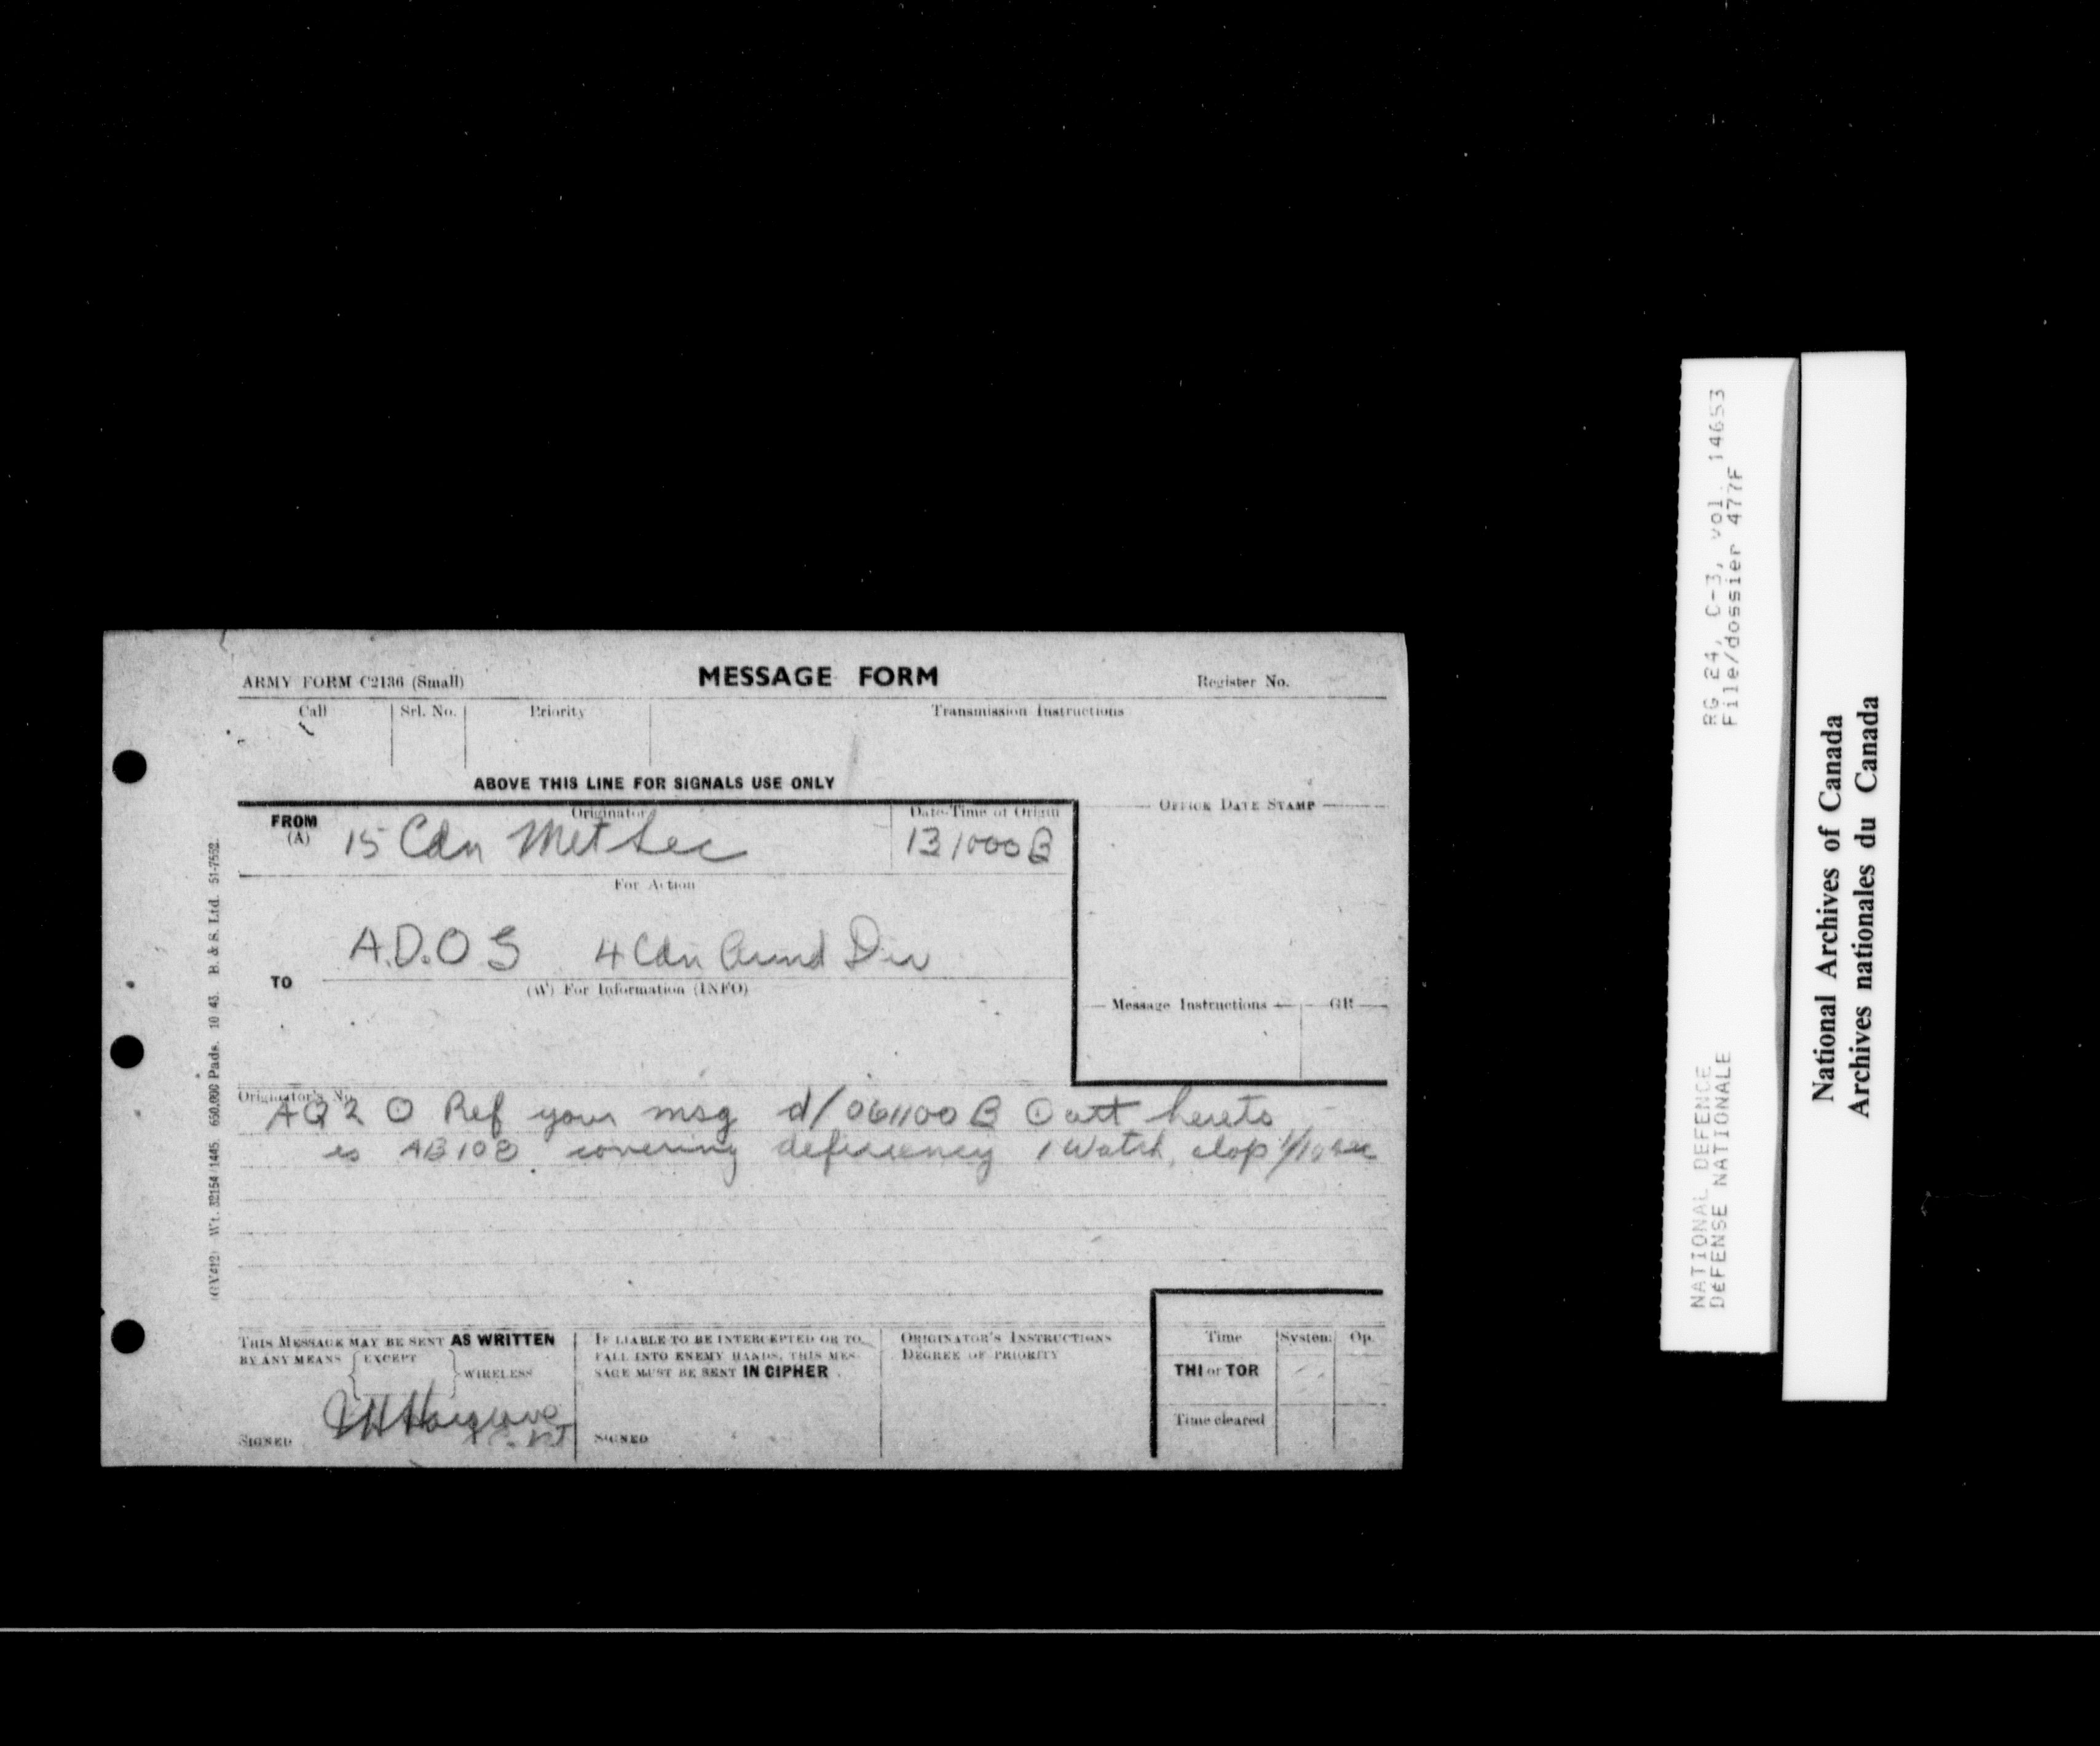 ARMY FORM C2136 (Small)
MESSAGE FORM
Register No.
Call
Srl. No.
Priority
Transmission Instructions
ABOVE THIS LINE FOR SIGNALS USE ONLY
FROM
(A)
Originator
15 Cdn Met Sec
Date-Time of Origin
131000B
OFFICE DATE STAMP
For Action
A.D.O S 4 Cdn Armd Div
TO
(W) For Information (INFO)
Message Instructions
GR
Originator's No.
AQ 2 ⊙ Ref your msg d/ 061100 B ⊙ att hereto
is AB108 covering deficiency 1 Watch, stop 1/10 sec
THIS MESSAGE MAY BE SENT AS WRITTEN
BY ANY MEANS { EXCEPT } WIRELESS
SIGNED
IF LIABLE TO BE INTERCEPTED OR TO
FALL INTO ENEMY HANDS, THIS MES-
SAGE MUST BE SENT IN CIPHER
SIGNED
ORIGINATOR'S INSTRUCTIONS
DEGREE OF PRIORITY
Time
System
Op.
THI or TOR
Time cleared
(GV412) Wt. 32154/1445. 650,000 Pads. 10/43. B. & S. Ltd. 51-7552.
RG 24, C-3, vol. 14653
File/dossier 477F
NATIONAL DEFENCE
DEFENSE NATIONALE
National Archives of Canada
Archives nationales du Canada